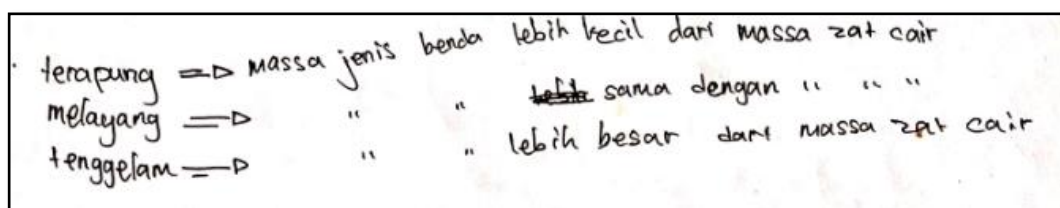 terapung => massa jenis benda lebih kecil dari massa zat cair
melayang => " " sama dengan " " "
tenggelam => " " lebih besar dari massa zat cair